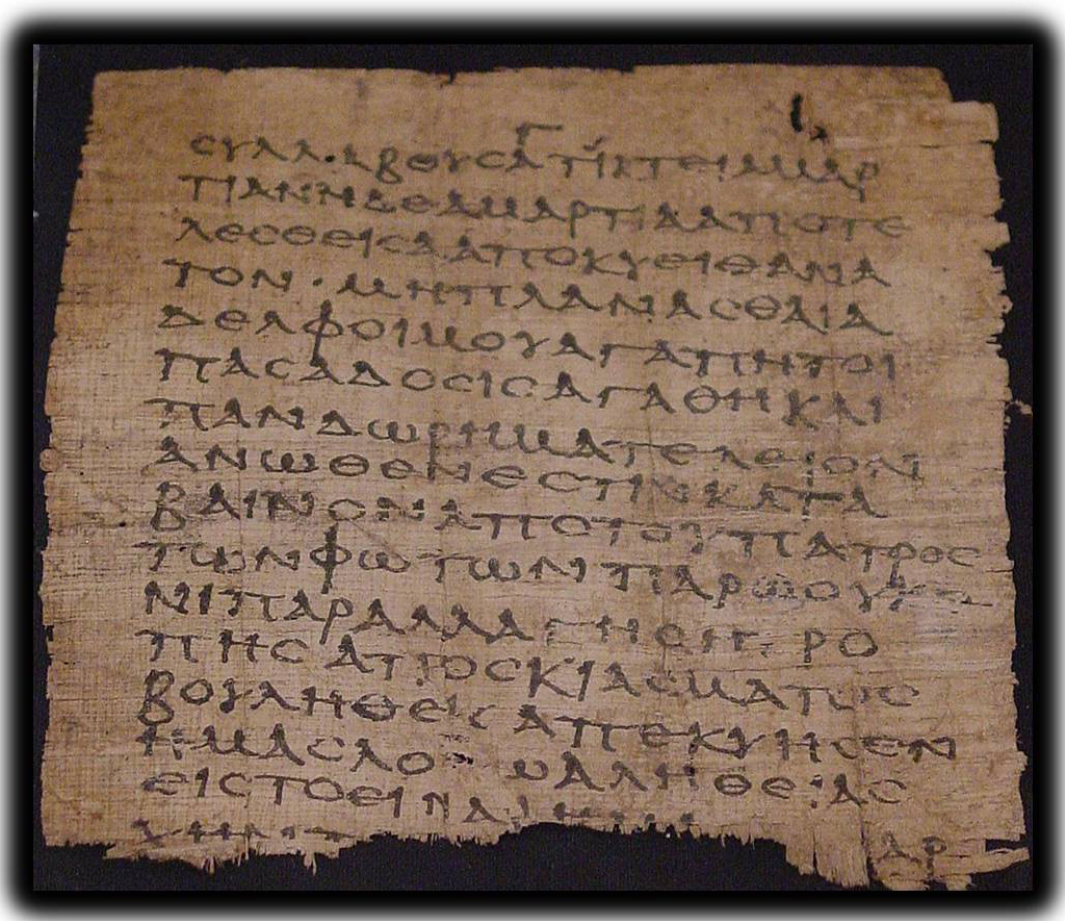 ϹΥΛΛΑΒΟΥϹΑΤΙΚΤΕΙΑΜΑΡ
ΤΙΑΝΗΔΕΑΜΑΡΤΙΑΑΠΟΤΕ
ΛΕϹΘΕΙϹΑΑΠΟΚΥΕΙΘΑΝΑ
ΤΟΝ · ΜΗΠΛΑΝΑϹΘΑΙΑ
ΔΕΛΦΟΙΜΟΥΑΓΑΠΗΤΟΙ
ΠΑϹΑΔΟϹΙϹΑΓΑΘΗΚΑΙ
ΠΑΝΔΩΡΗΜΑΤΕΛΕΙΟΝ
ΑΝΩΘΕΝΕϹΤΙΝΚΑΤΑ
ΒΑΙΝΟΝΑΠΟΤΟΥΠΑΤΡΟϹ
ΤΩΝΦΩΤΩΝΠΑΡΩΟΥΚΕ
ΝΙΠΑΡΑΛΛΑΓΗϹΗΤΡΟ
ΠΗϹΑΠΟϹΚΙΑϹΜΑΤΟϹ
ΒΟΥΛΗΘΕΙϹΑΠΕΚΥΗϹΕΝ
ΗΜΑϹΛΟΓΩΑΛΗΘΕΙΑϹ
ΕΙϹΤΟΕΙΝΑΙ
ΑΡ